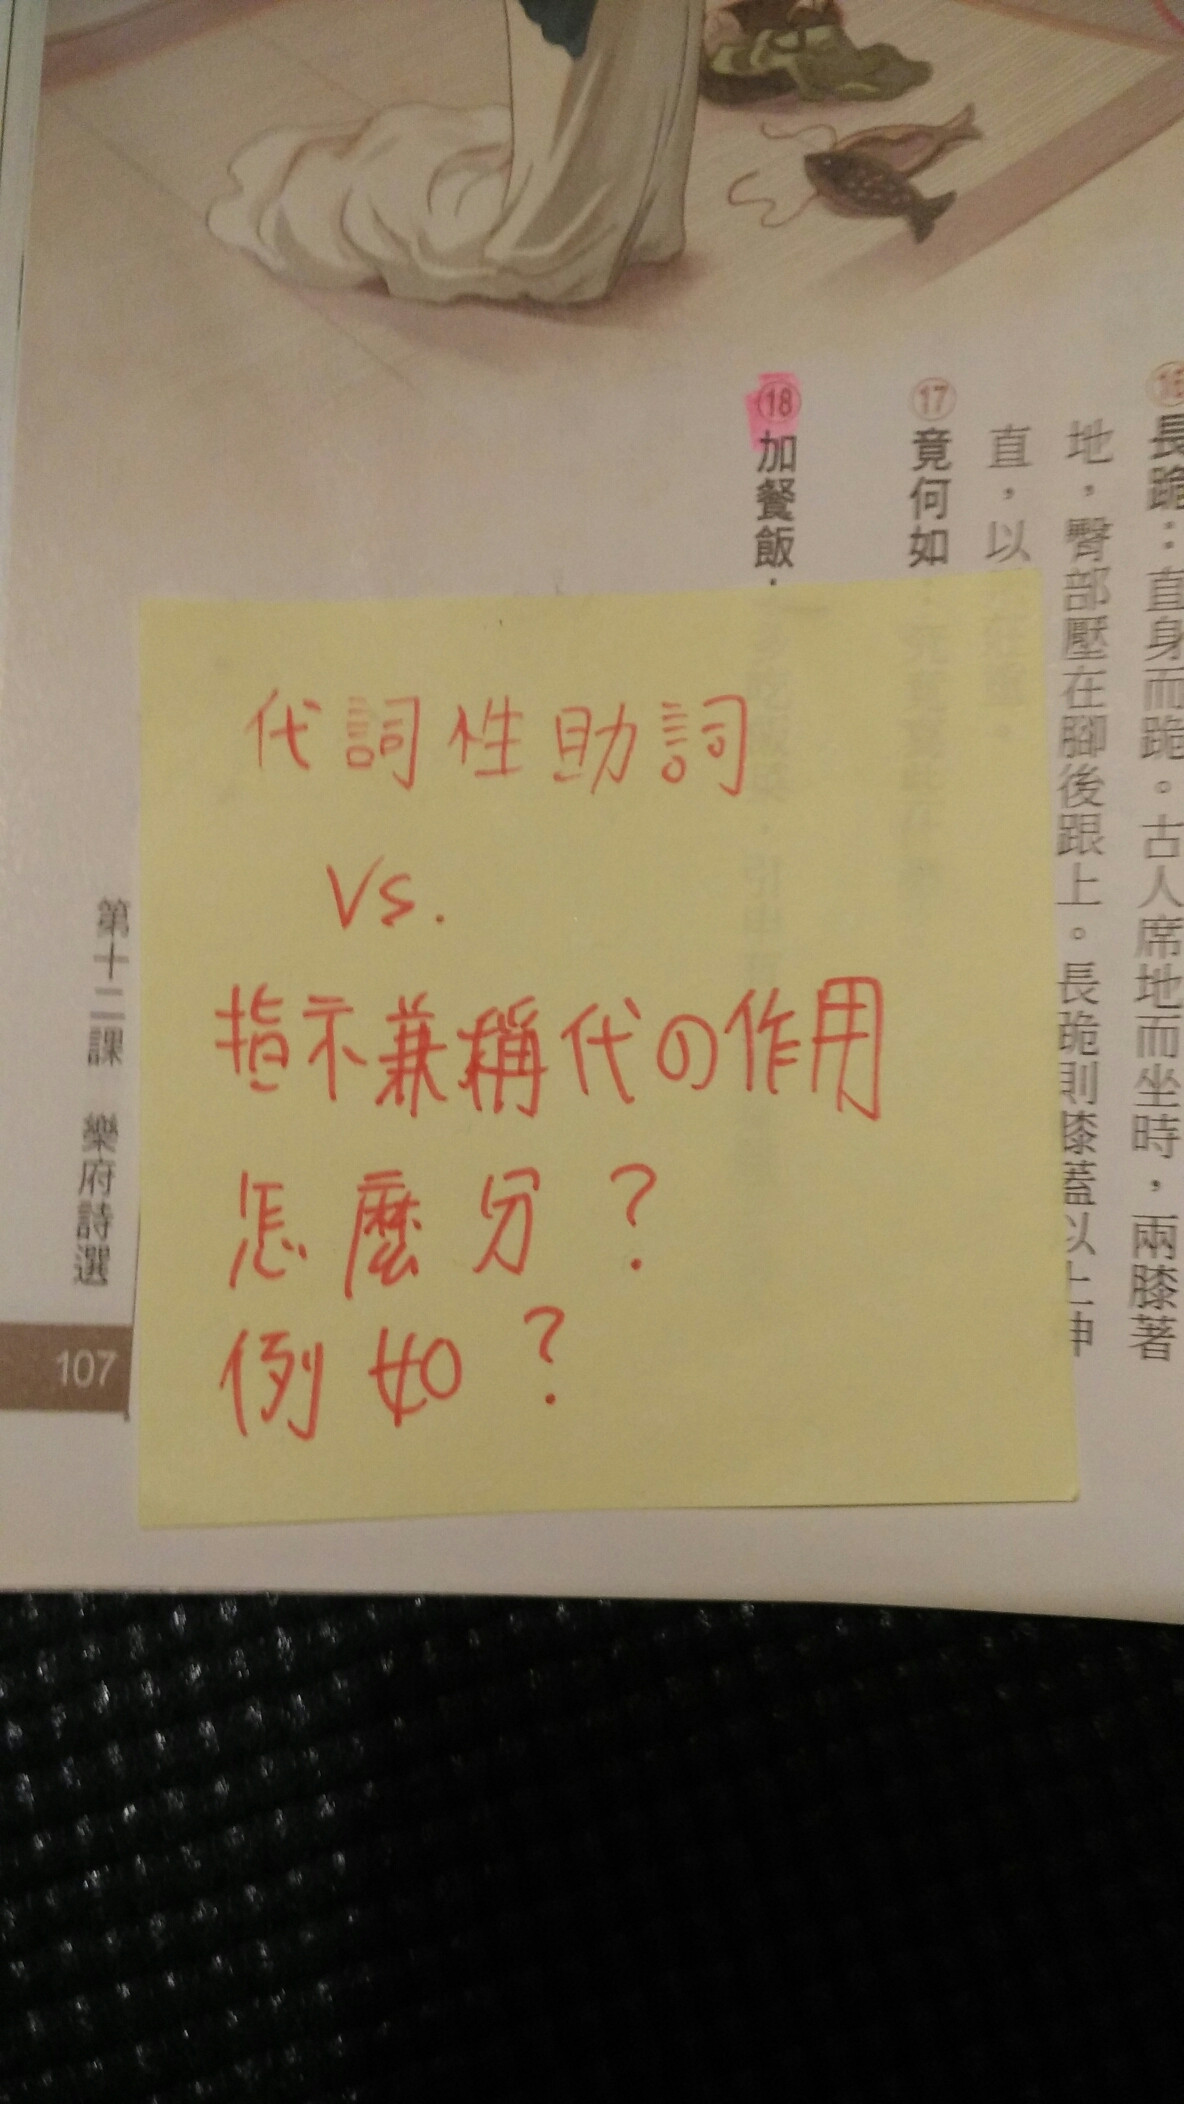 ⑯長跪：直身而跪。古人席地而坐時，兩膝著
地，臀部壓在腳後跟上。長跪則膝蓋以上伸
直，以
⑰竟何如
⑱加餐飯
代詞性助詞
vs.
指示兼稱代の作用
怎麼分？
例如？
第十二課 樂府詩選
107